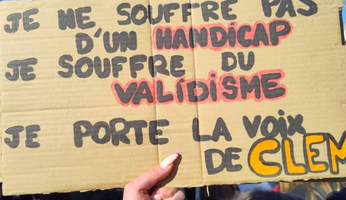 JE NE SOUFFRE PAS
D'UN HANDICAP
JE SOUFFRE DU
VALIDISME
JE PORTE LA VOIX
DE CLEM